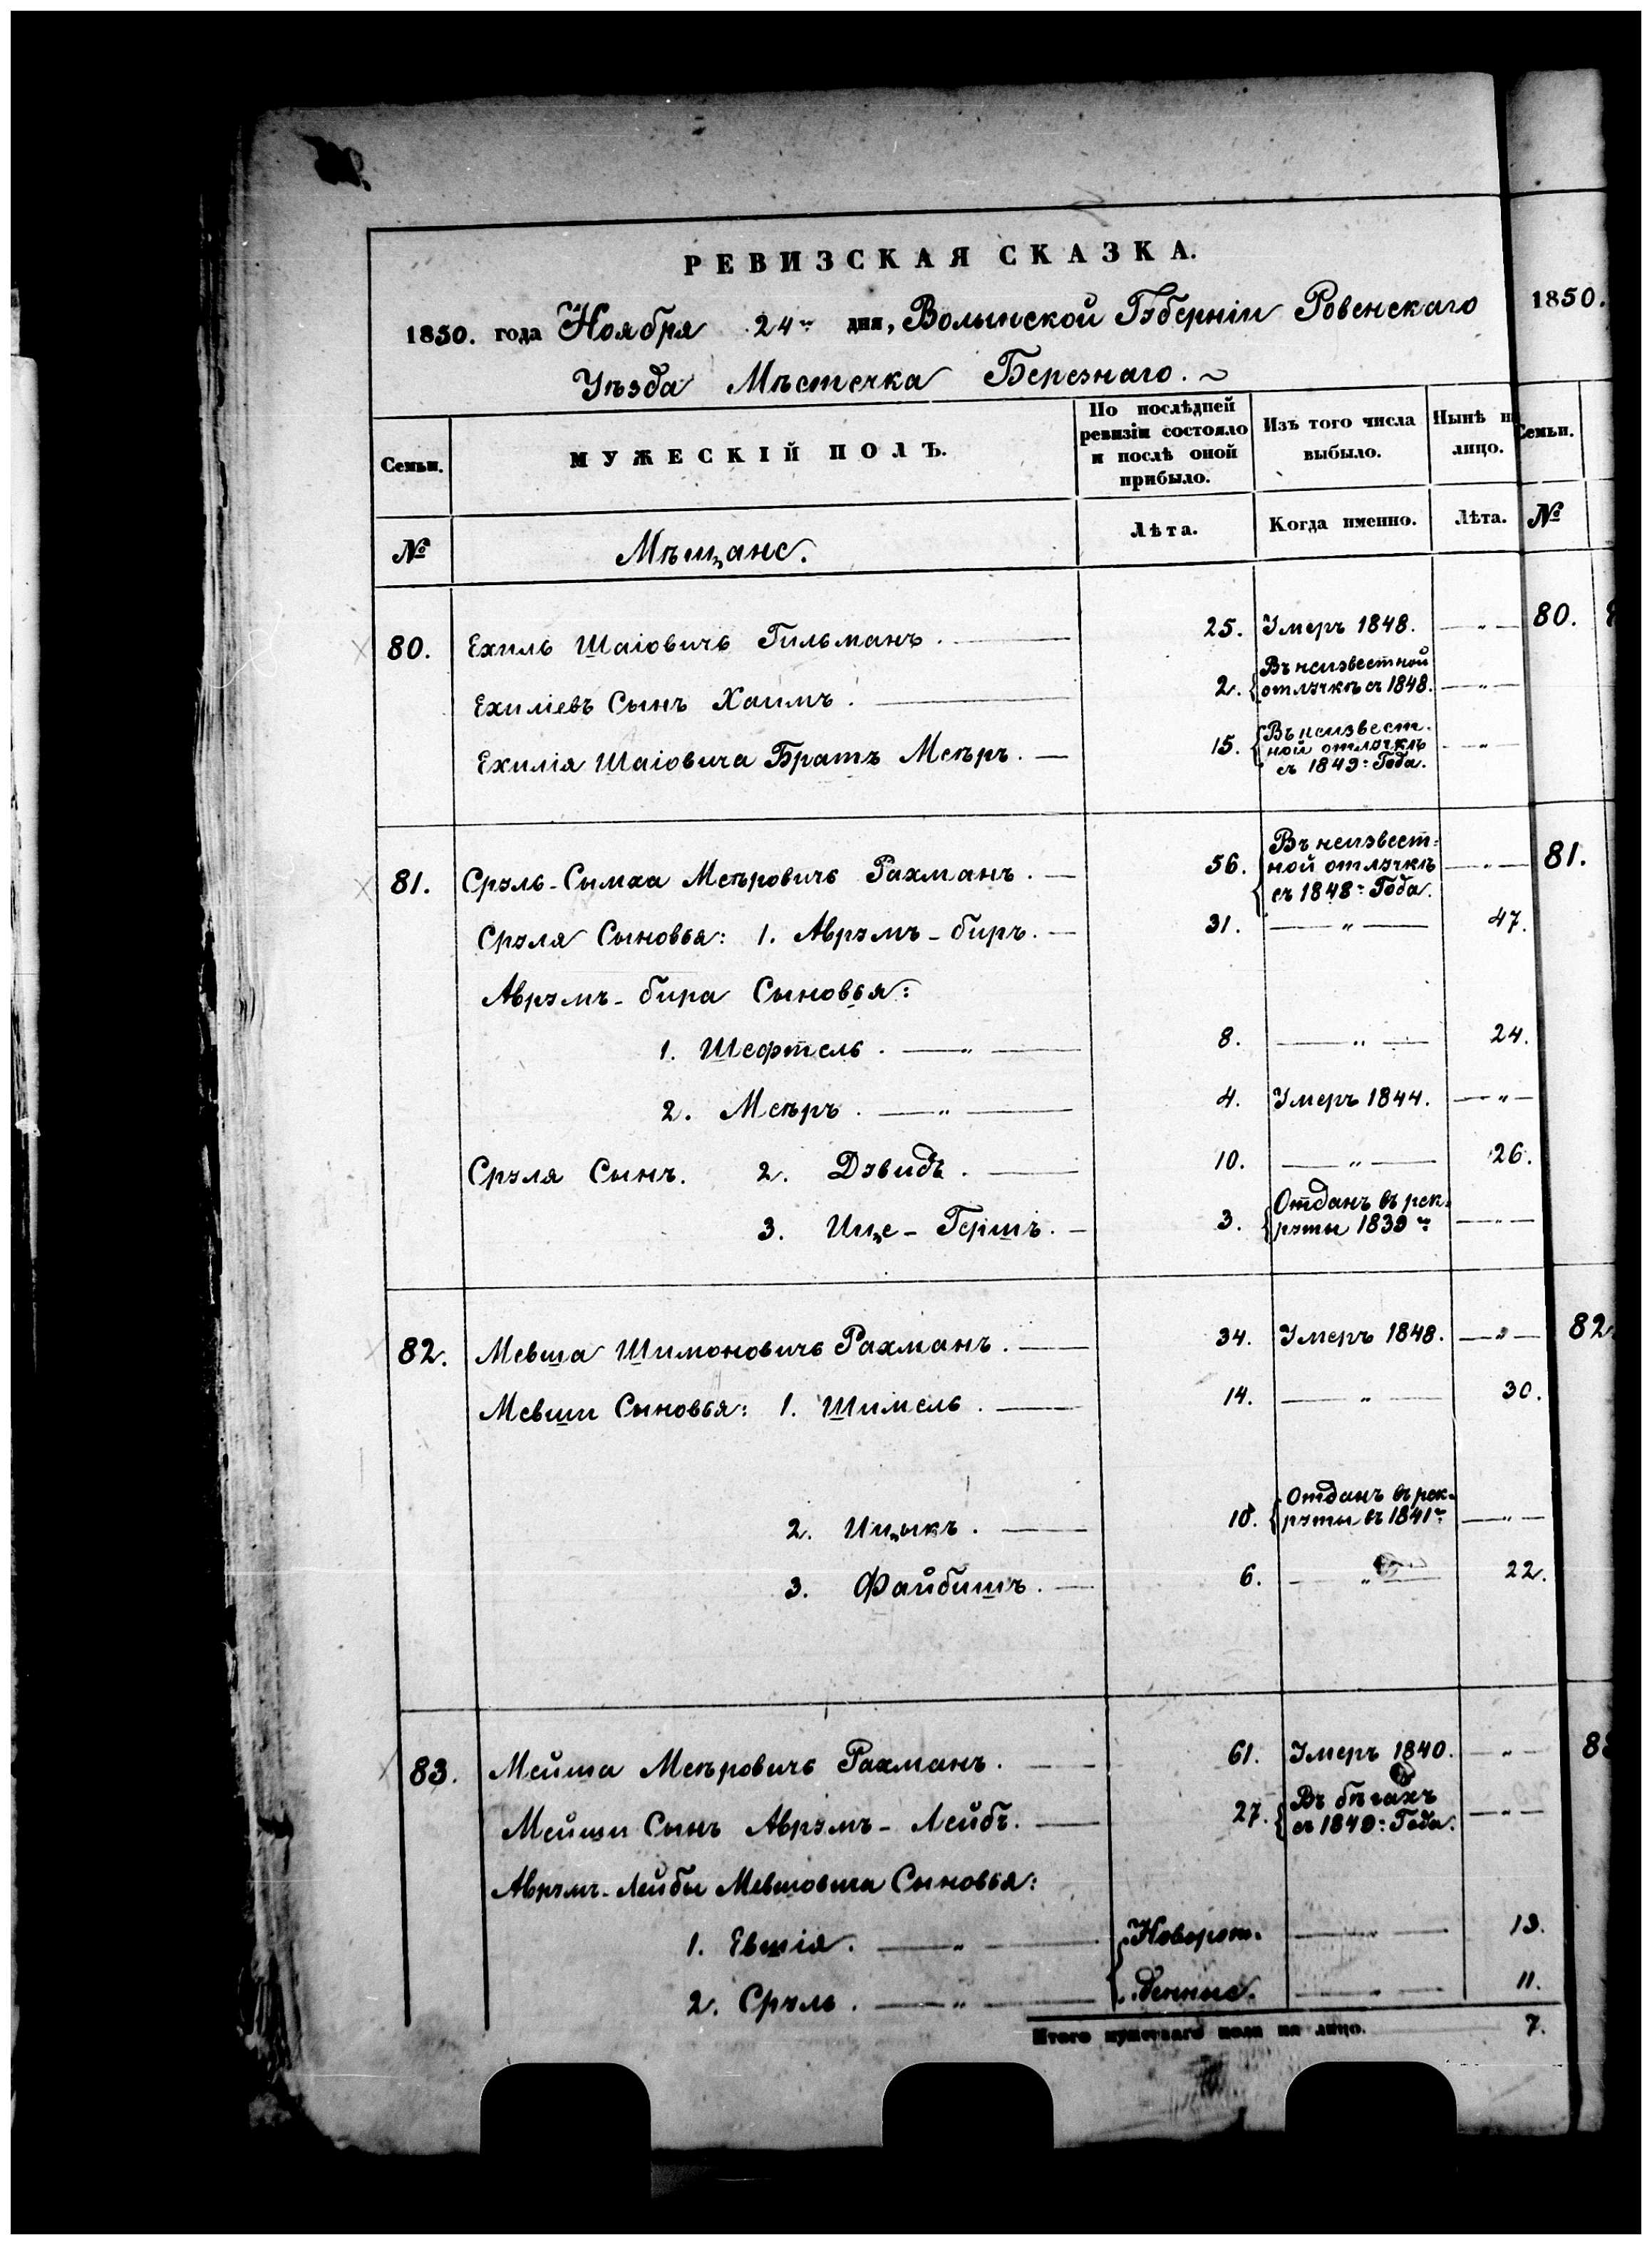 РЕВИЗСКАЯ СКАЗКА.
1850. года Ноября 24го дня, Волынской Губерніи Ровенскаго
Уѣзда Мѣстечка Березнаго.
Семьи.
МУЖЕСКІЙ ПОЛЪ.
По послѣдней
ревизіи состояло
и послѣ оной
прибыло.
Изъ того числа
выбыло.
Нынѣ н
лицо.
№
Мѣщане.
Лѣта.
Когда именно.
Лѣта.
80. Ехиль Шаіовичь Гильманъ. 25. Умеръ 1848. — „ —
Ехиліевъ Сынъ Хаимъ. 2. Въ неизвестной
отлучкѣ съ 1848. — „ —
Ехилія Шаіовича Братъ Меѣръ. 15. Въ неизвест-
ной отлучкѣ
съ 1849: Года. — „ —
81. Сруль-Сымха Меѣровичь Рахманъ. 56. Въ неизвест-
ной отлучкѣ
съ 1848: Года. — „ —
Сруля Сыновья: 1. Аврумъ-биръ. 31. — „ — 47.
Аврумъ-бира Сыновья:
1. Шефтель. — „ — 8. — „ — 24.
2. Меѣръ. — „ — 4. Умеръ 1844. — „ —
Сруля Сынъ. 2. Дувидъ. 10. — „ — 26.
3. Ице-Гершъ. 3. Отданъ въ рек-
руты 1839го — „ —
82. Мевша Шимоновичь Рахманъ. 34. Умеръ 1848. — „ —
Мевши Сыновья: 1. Шимель. 14. — „ — 30.
2. Ицыкъ. 10. Отданъ въ рек-
руты въ 1841го — „ —
3. Файбишъ. 6. — „ — 22.
83. Мейша Меѣровичь Рахманъ. 61. Умеръ 1840. — „ —
Мейши Сынъ Аврумъ-Лейбъ. 27. Въ бѣгахъ
съ 1849: Года. — „ —
Аврумъ-Лейбы Мевшовича Сыновья:
1. Евшія. — „ — Новорож- — „ — 13.
2. Сруль. — „ — денные. — „ — 11.
Итого мужескаго пола на лицо. 7.
1850.
Семьи.
№
80.
81.
82.